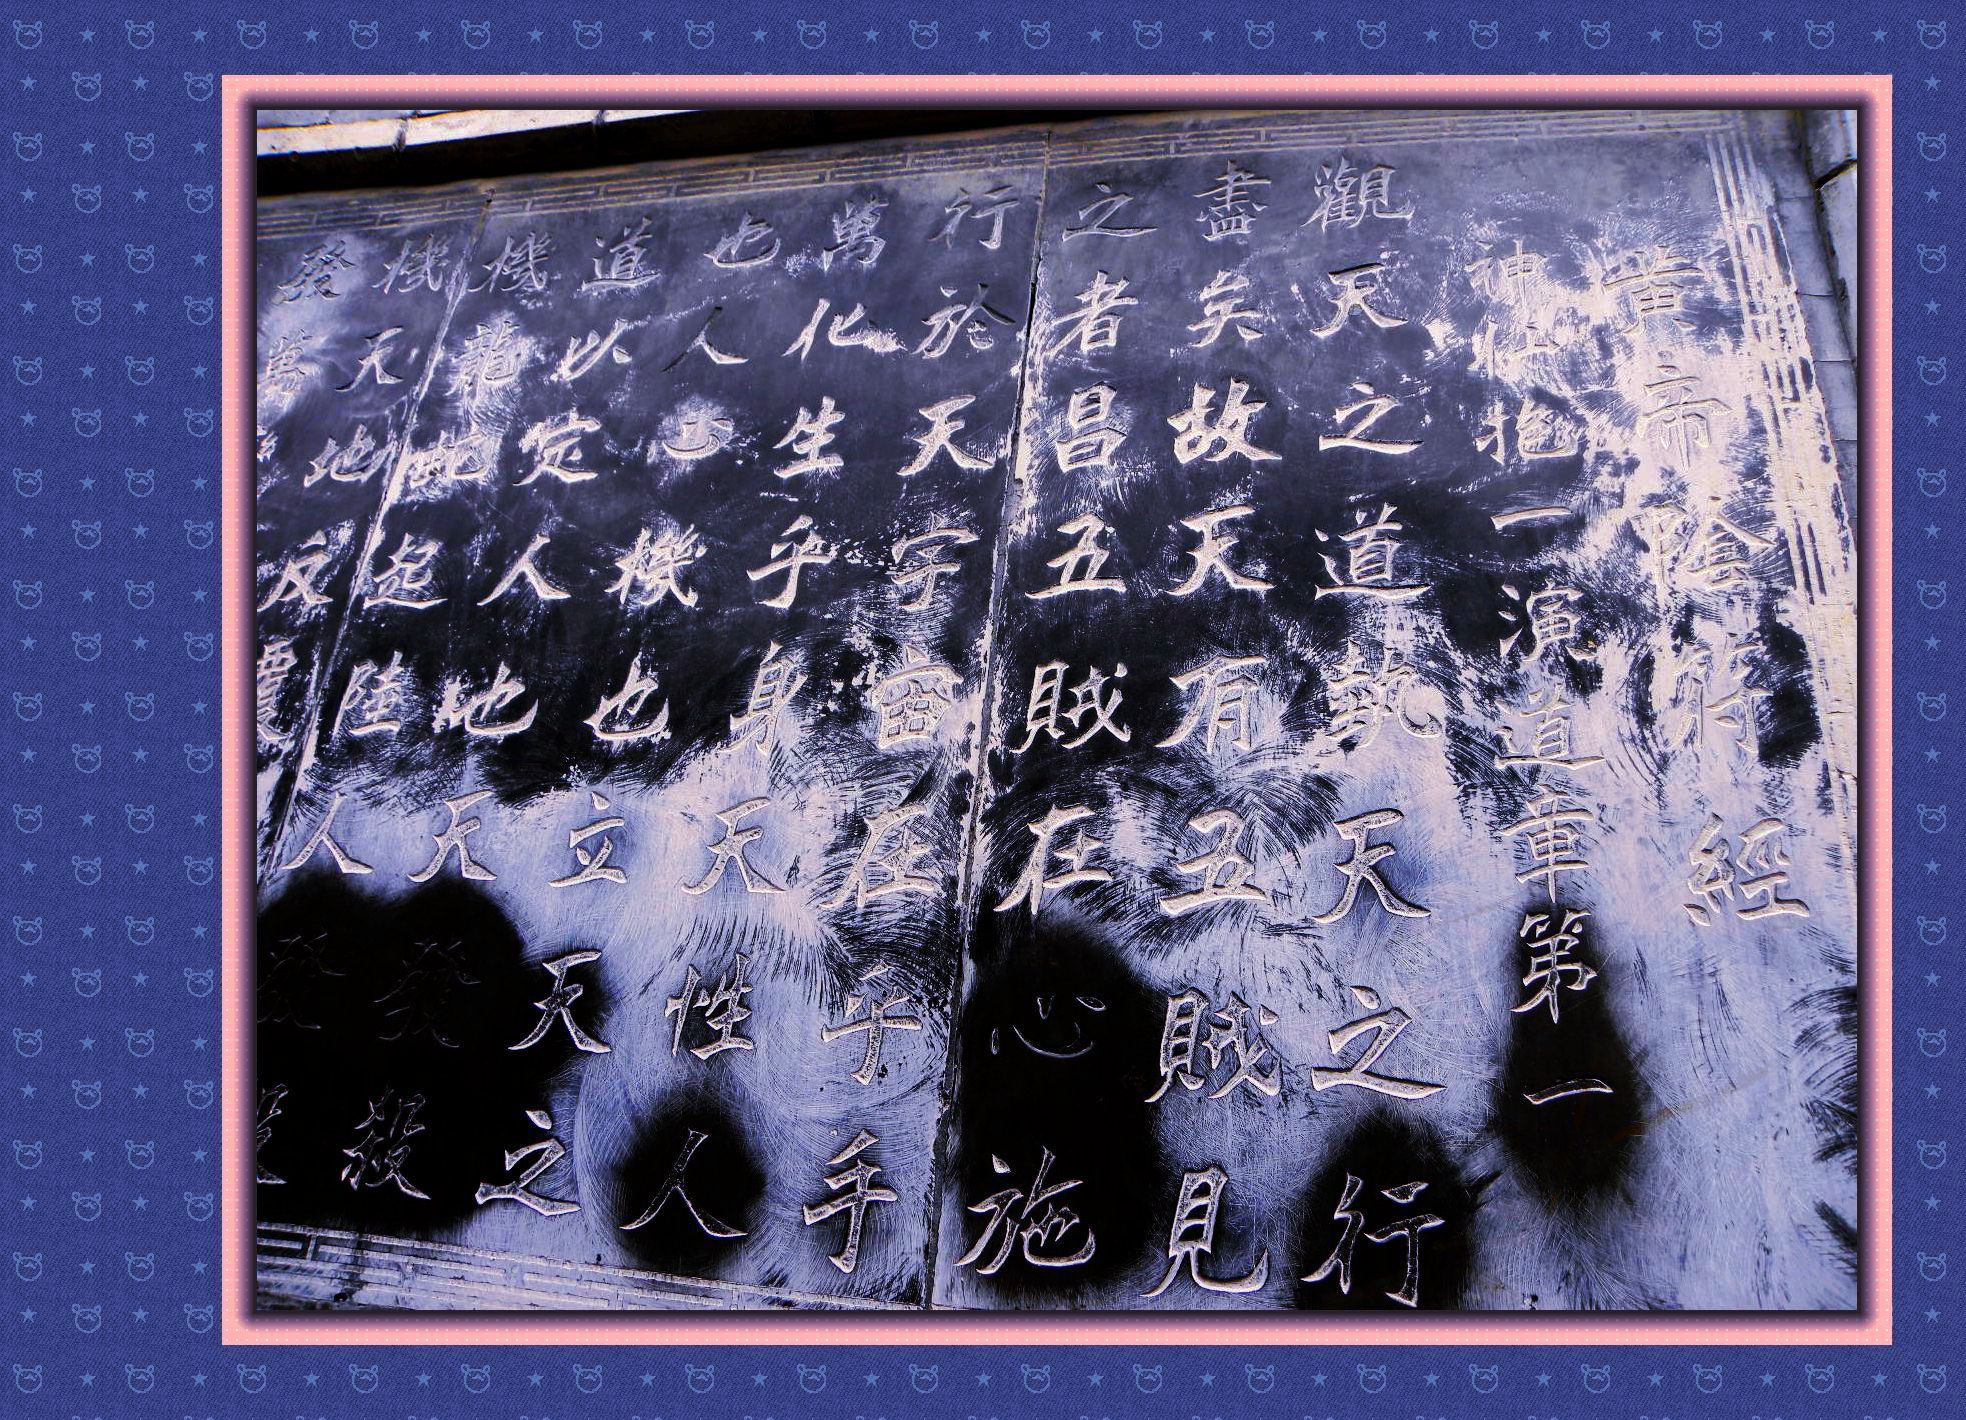 黄帝陰符經
神仙抱一演道章第一
觀天之道執天之行
盡矣故天有五賊見
之者昌五賊在心施
行於天宇宙在乎手
萬化生乎身天性人
也人心機也立天之
道以定人也天發殺
機龍蛇起陸人發殺
機天地反覆
發萬